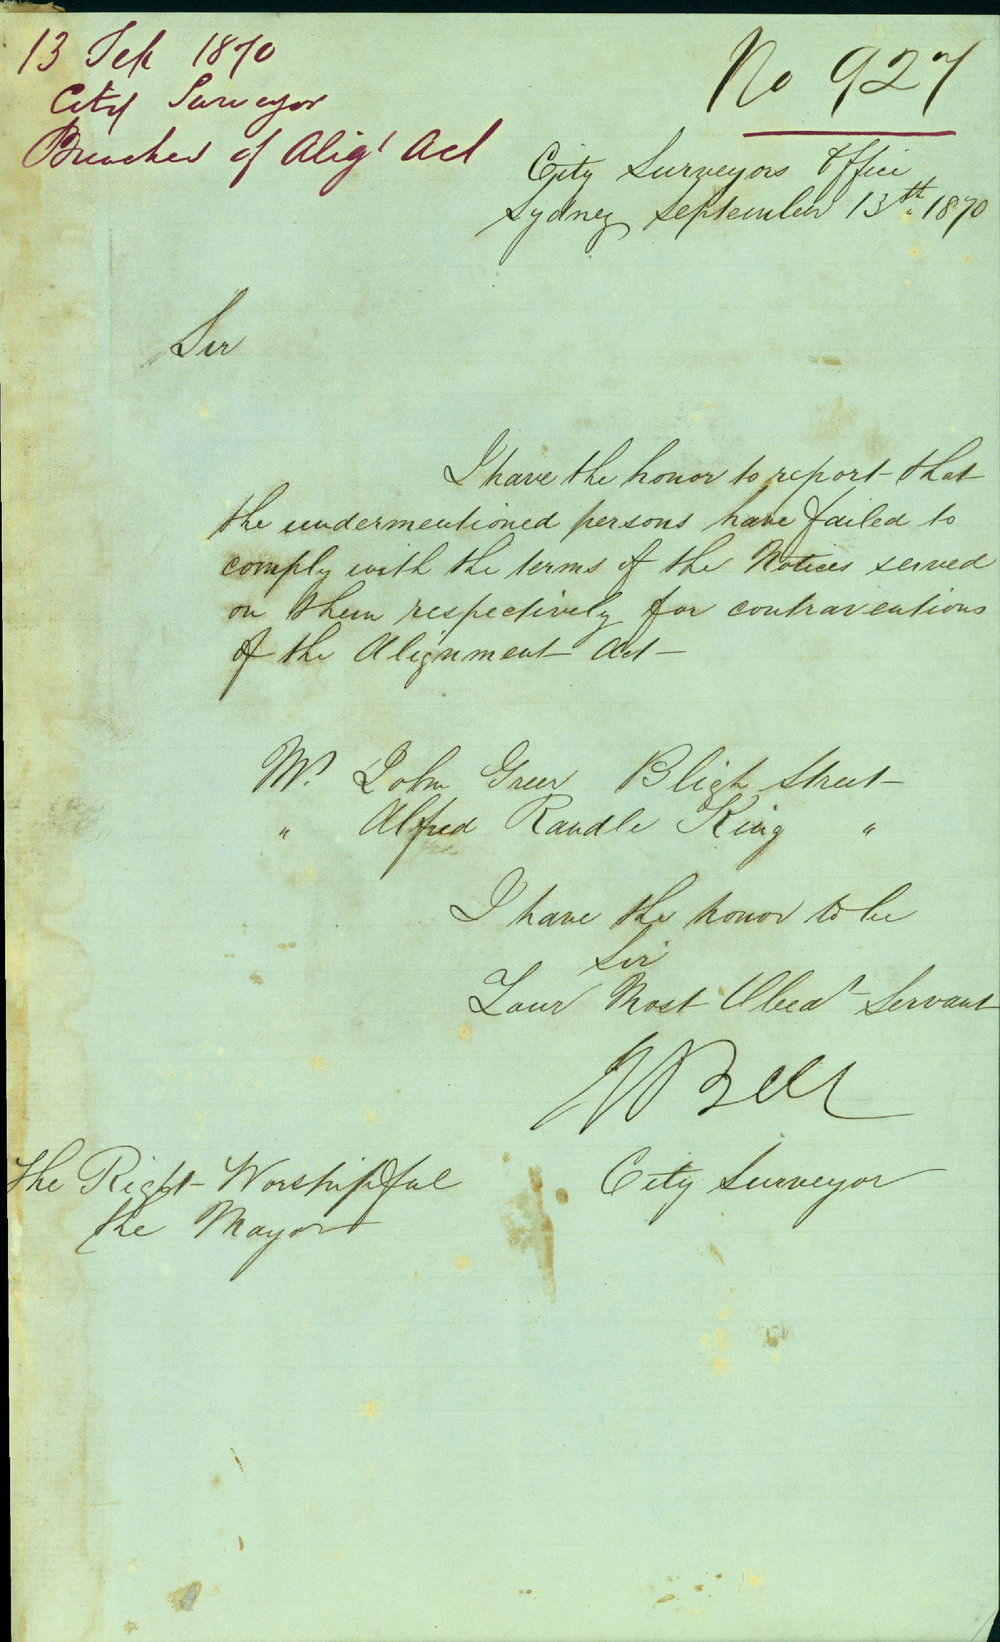 13 Sep 1870
City Surveyor
Breaches of Alig't Act
No 927
City Surveyors Office
Sydney September 13th 1870
Sir
I have the honor to report that
the undermentioned persons have failed to
comply with the terms of the Notices served
on them respectively for contraventions
of the Alignment Act —
Mr John Greer Bligh Street
" Alfred Randle King "
I have the honor to be
Sir
Your Most Obedt Servant
Bell
City Surveyor
The Right Worshipful
the Mayor